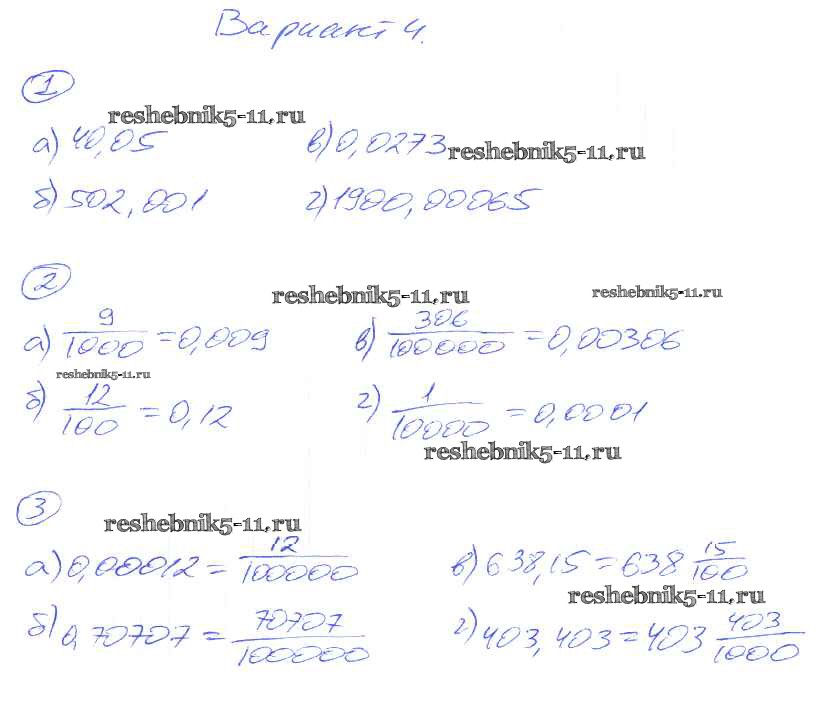 Вариант 4.
1
reshebnik5-11.ru
а) 40,05 в) 0,0273 reshebnik5-11.ru
б) 502,001 г) 1900,00065
2
reshebnik5-11.ru reshebnik5-11.ru
а) 9/1000 = 0,009 в) 306/100000 = 0,00306
reshebnik5-11.ru
б) 12/100 = 0,12 г) 1/10000 = 0,0001
reshebnik5-11.ru
3
reshebnik5-11.ru
а) 0,00012 = 12/100000 в) 638,15 = 638 15/100
reshebnik5-11.ru
б) 0,70707 = 70707/100000 г) 403,403 = 403 403/1000